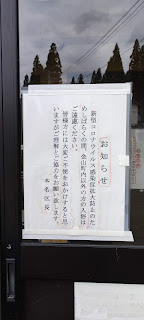 お知らせ
新型コロナウイルス感染症拡大防止のた
めしばらくの間、金山町内以外の方の入浴は
ご遠慮ください。
皆様方には大変ご不便をおかけすると思
いますがご理解とご協力をお願い致します。
本名区長